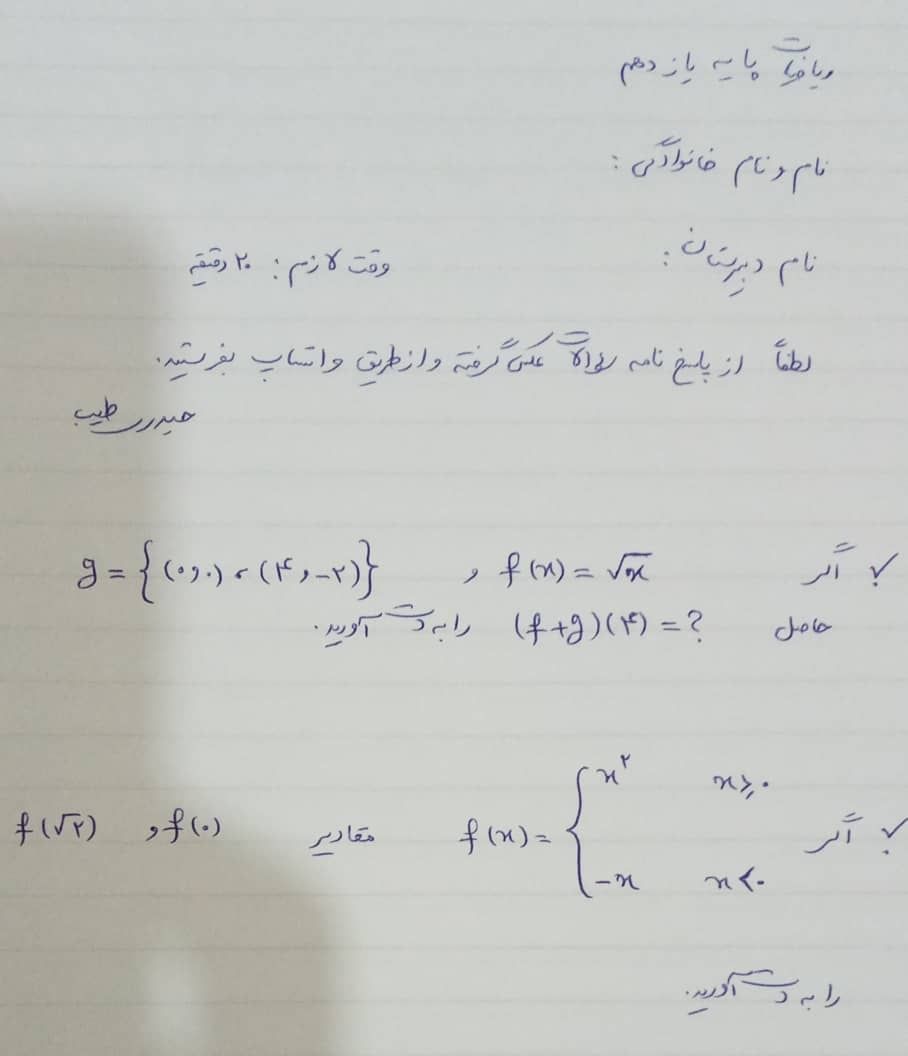 ریاضیات پایه یازدهم
نام و نام خانوادگی :
نام دبیرستان : وقت لازم : ۲۰ دقیقه
لطفاً از پاسخ نامه سؤالات عکس گرفته و از طریق واتساپ بفرستید.
حیدری طیب
✓ اگر f(x) = √x و g = {(۰,۰) ، (۴,-۲)}
حاصل (f+g)(۴) = ? را به دست آورید.
✓ اگر f(x) = { x² x≥۰ مقادیر f(۰) و f(√۲)
-x x<۰
را به دست آورید.